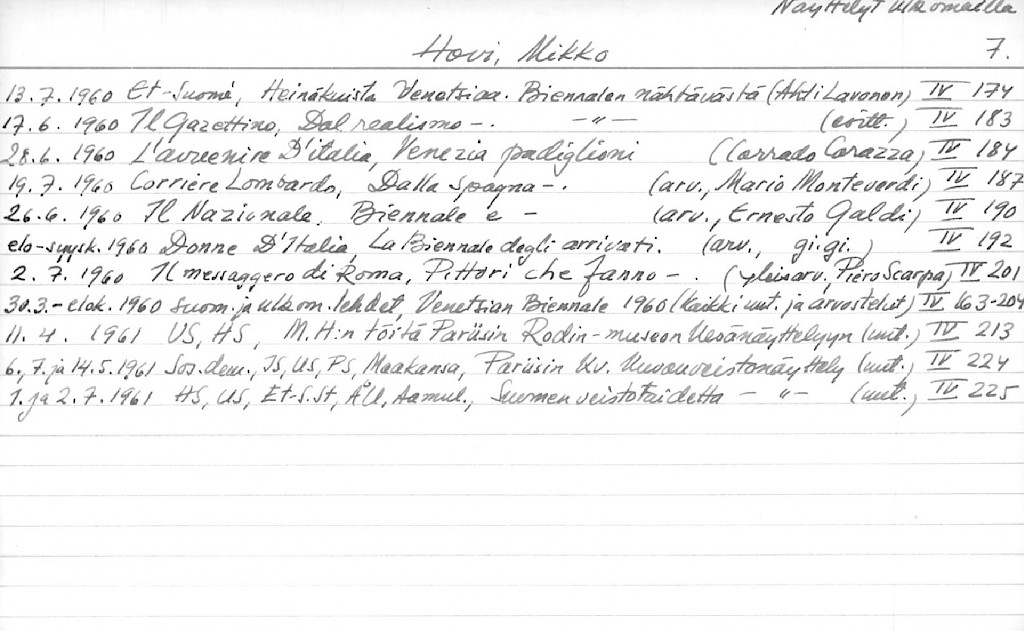 Näyttelyt ulkomailla
Hovi, Mikko 7.
13.7.1960 Et-Suomi, Heinäkuista Venetsiaa. Biennalen nähtävästä (Ahti Lavonen) IV 174
17.6. 1960 Il Gazettino, Dal realismo -. -"- (evitt.) IV 183
28.6. 1960 L'avvenire D'italia, Venezia padiglioni (Corrado Corazza) IV 184
19.7. 1960 Corriere Lombardo, Dalla Spagna -. (arv., Mario Monteverdi) IV 187
26.6. 1960 Il Nazionale, Biennale e - (arv., Ernesto Galdi) IV 190
elo-syysk. 1960 Donne D'Italia, La Biennale degli arrivati. (arv., gi.gi.) IV 192
2. 7. 1960 Il messaggero di Roma, Pittori che fanno -. (yleisarv., Piero Scarpa) IV 201
30.3.-elok. 1960 Suom. ja ulkom. lehdet, Venetsian Biennale 1960 (Kaikki uut. ja arvostelut) IV 163-204
11. 4. 1961 US, HS, M.H:n töitä Pariisin Rodin-museon kesänäyttelyyn (uut.) IV 213
6., 7. ja 14.5.1961 Sos.dem., IS, US, PS, Maakansa, Pariisin Kv. Kuvanveistonäyttely (uut.) IV 224
1. ja 2.7.1961 HS, US, Et-S.St, ÅU, Aamul., Suomen veistotaidetta -"- (uut.) IV 225